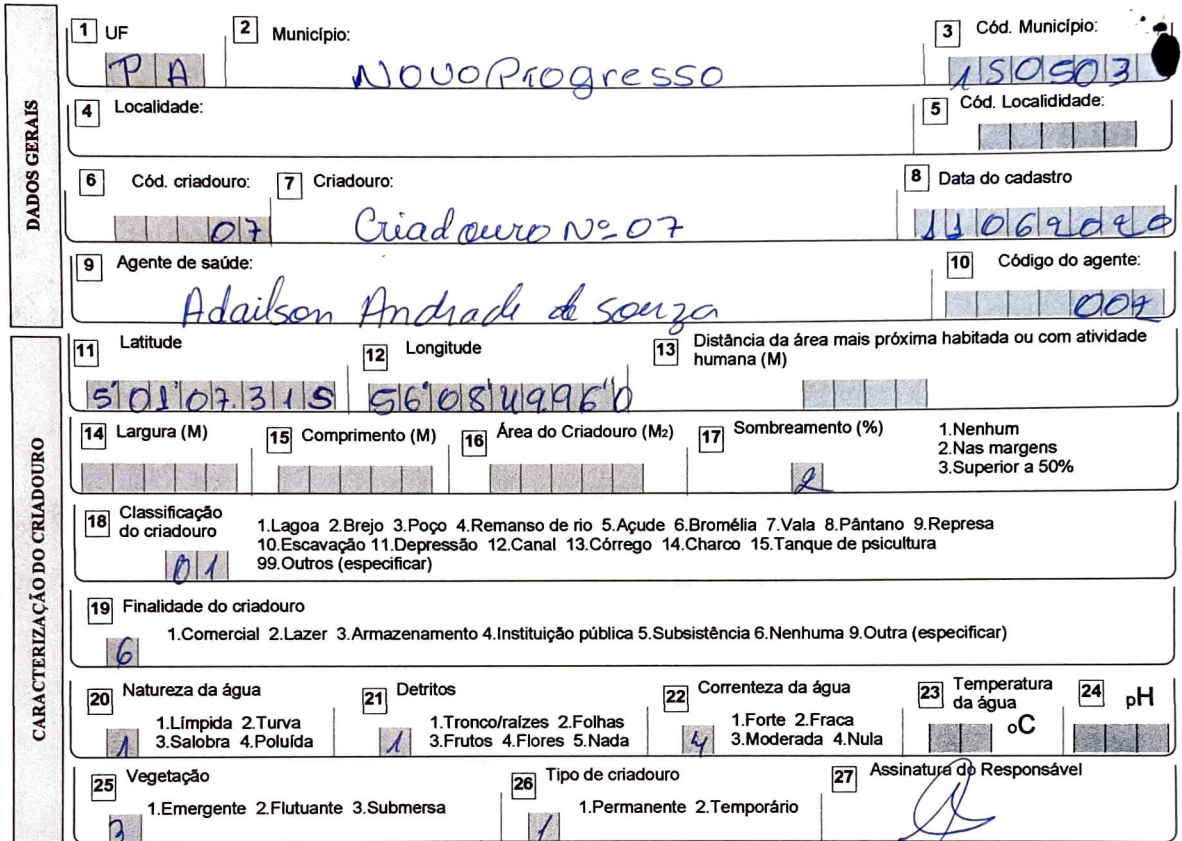 DADOS GERAIS
1 UF
PA
2 Município:
Novo Progresso
3 Cód. Município:
150503
4 Localidade:
5 Cód. Localididade:
6 Cód. criadouro:
07
7 Criadouro:
Criadouro Nº 07
8 Data do cadastro
11062020
9 Agente de saúde:
Adailson Andrade de Souza
10 Código do agente:
007
CARACTERIZAÇÃO DO CRIADOURO
11 Latitude
5°01'07.31S
12 Longitude
56°08'49.96"O
13 Distância da área mais próxima habitada ou com atividade
humana (M)
14 Largura (M)
15 Comprimento (M)
16 Área do Criadouro (M2)
17 Sombreamento (%)
2
1.Nenhum
2.Nas margens
3.Superior a 50%
18 Classificação
do criadouro
01
1.Lagoa 2.Brejo 3.Poço 4.Remanso de rio 5.Açude 6.Bromélia 7.Vala 8.Pântano 9.Represa
10.Escavação 11.Depressão 12.Canal 13.Córrego 14.Charco 15.Tanque de psicultura
99.Outros (especificar)
19 Finalidade do criadouro
1.Comercial 2.Lazer 3.Armazenamento 4.Instituição pública 5.Subsistência 6.Nenhuma 9.Outra (especificar)
6
20 Natureza da água
1.Límpida 2.Turva
3.Salobra 4.Poluída
1
21 Detritos
1.Tronco/raízes 2.Folhas
3.Frutos 4.Flores 5.Nada
1
22 Correnteza da água
1.Forte 2.Fraca
3.Moderada 4.Nula
4
23 Temperatura
da água
oC
24 pH
25 Vegetação
1.Emergente 2.Flutuante 3.Submersa
3
26 Tipo de criadouro
1.Permanente 2.Temporário
1
27 Assinatura do Responsável